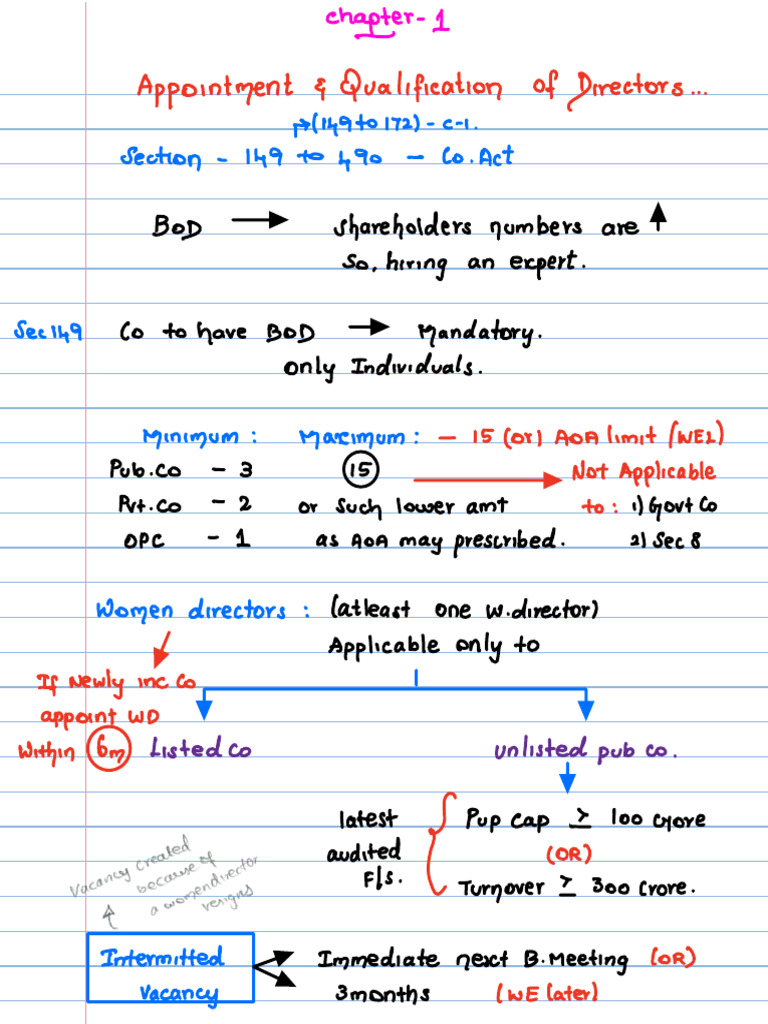 chapter-1
Appointment & Qualification of Directors...
↳(149 to 172) - C-1.
Section - 149 to 490 - Co. Act
BoD → shareholders numbers are ↑
So, hiring an expert.
Sec 149 Co to have BoD → Mandatory.
only Individuals.
Minimum : Maximum : - 15 (or) AOA limit (WEL)
Pub.co - 3 15 → Not Applicable
Pvt.co - 2 or such lower amt to : 1) Govt Co
OPC - 1 as AOA may prescribed. 2) Sec 8
Women directors : (atleast one w.director)
Applicable only to
If Newly inc Co
appoint WD
within 6m Listed Co unlisted pub co.
latest Pup cap ≥ 100 crore
audited (OR)
F/s. Turnover ≥ 300 crore.
Vacancy created
because of
a women director
resigns
Intermitted Immediate next B.Meeting (OR)
Vacancy 3months (WE later)